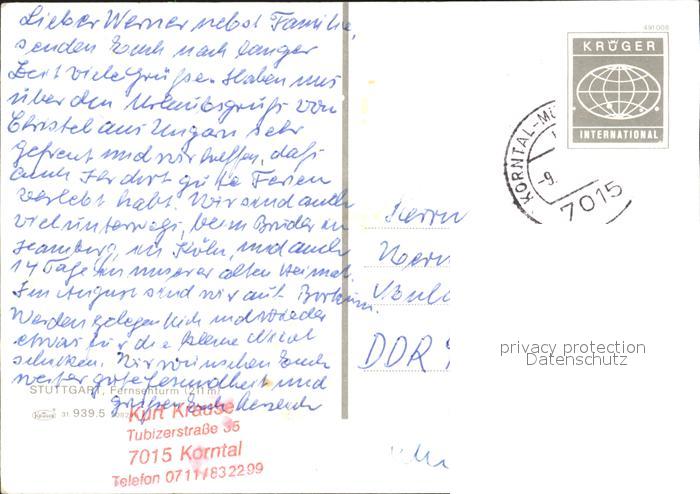 Lieber Werner nebst Familie,
senden Euch nach langer
Zeit viele Grüße. Haben uns
über den Urlaubsgruß von
Christel aus Ungarn sehr
gefreut und wir hoffen, daß
auch Ihr dort gute Ferien
verlebt habt. Wir sind auch
viel unterwegs, beim Bruder in
Hamburg, in Köln, und auch
14 Tage in unserer alten Heimat.
Im August sind wir auf Borkum.
Werden gelegentlich mal wieder
etwas für die kleine
schicken. Wir wünschen Euch
weiter gute Gesundheit und
grüßen Euch herzlich
STUTTGART, Fernsehturm (211 m)
Krüger 31 939.5
Kurt Krause
Tubizerstraße 35
7015 Korntal
Telefon 0711/832299
491 008
KRÜGER
INTERNATIONAL
KORNTAL-MÜ
-9.
7015
Herrn
Wern
DDR
privacy protection
Datenschutz